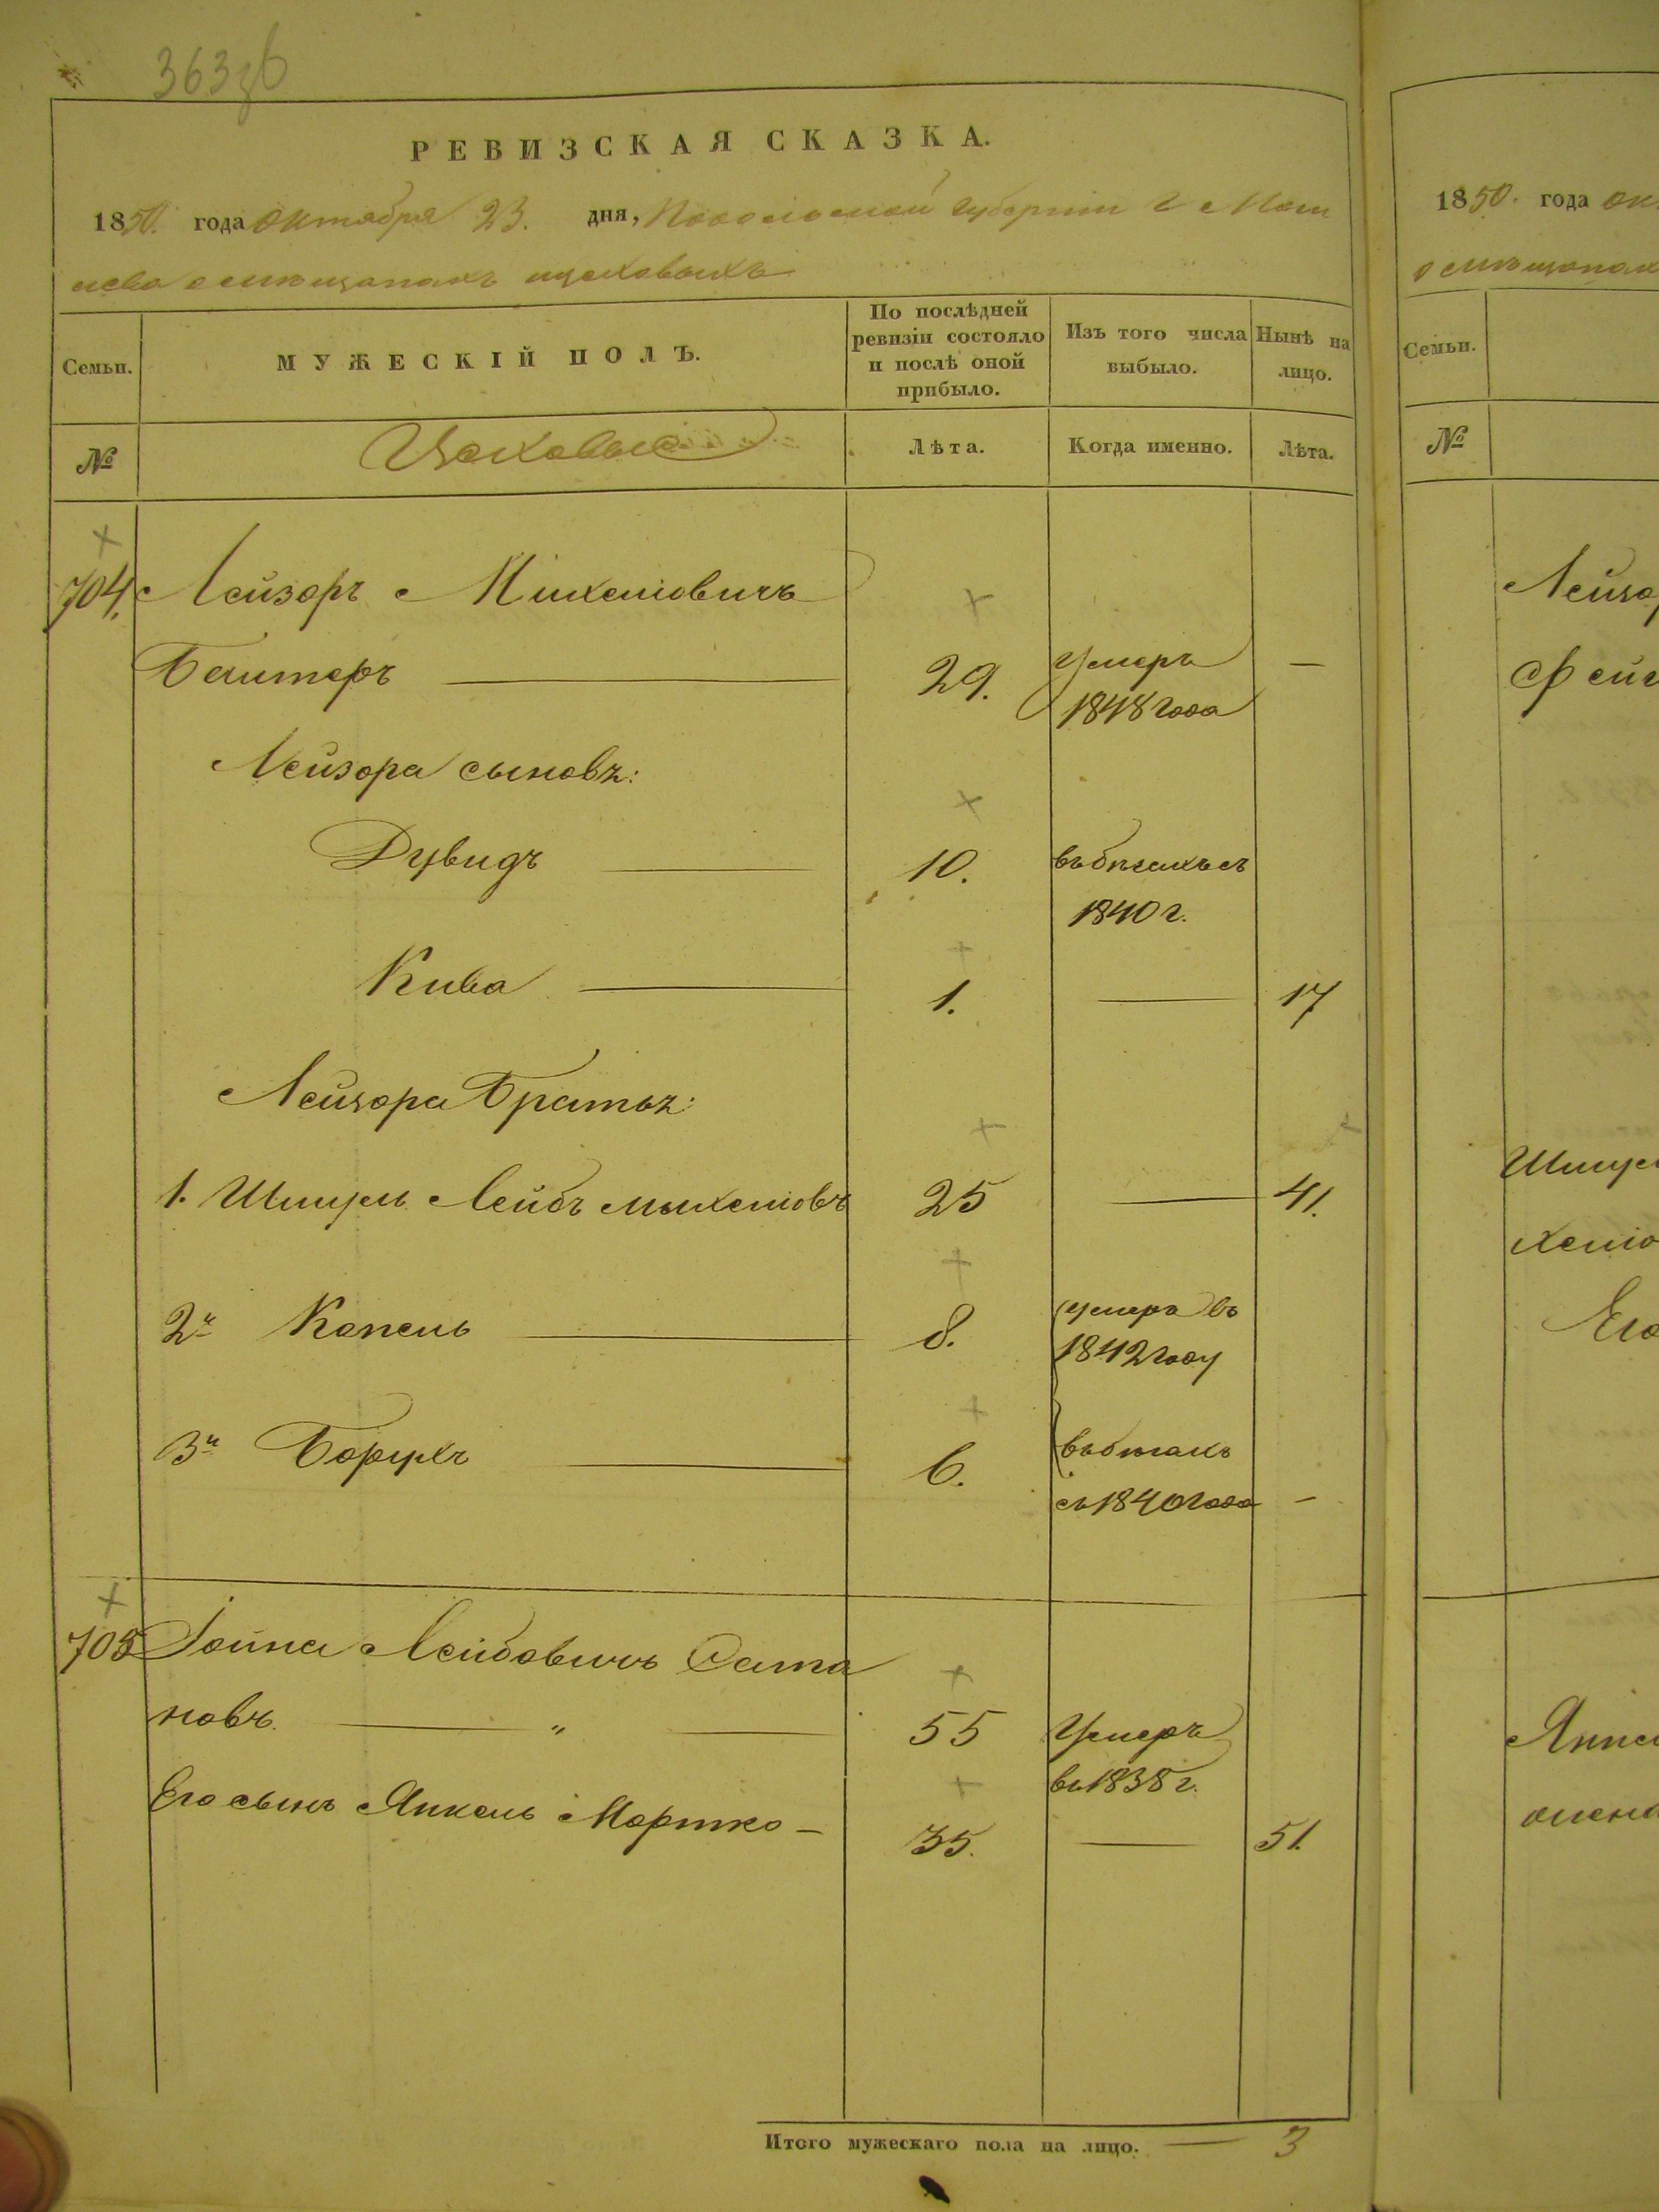 363зб
РЕВИЗСКАЯ СКАЗКА.
1850. года октября 23. дня, Подольской губерніи г Моги
лева о мѣщанахъ цеховыхъ
Семьи.
МУЖЕСКІЙ ПОЛЪ.
По послѣдней ревизіи состояло и послѣ оной прибыло.
Изъ того числа выбыло.
Нынѣ на лицо.
№
Цеховые
Лѣта.
Когда именно.
Лѣта.
704. Лейзоръ Михелiовичъ
29. Умеръ —
1848 года
Лейзора сыновъ:
Дувидъ 10. въ бѣгахъ съ
1840 г.
Кива 1. — 17
Лейзора братьъ:
1. Шмуль Лейбъ Михелiовъ 25 — 41.
2й Копель 8. умеръ въ
1842 году
3й Борухъ 6. въ бѣгахъ
съ 1840 года —
705 Іойна Лейбовичъ Сата
новъ. — " — 55 Умеръ
въ 1838 г.
Его сынъ Янкель Мортко — 35. — 51.
Итого мужескаго пола на лицо. — 3
1850. года ок
о мѣщанахъ
Семьи.
№
Лейзо
Фейг
Шмул
хеліо
Его
Янке